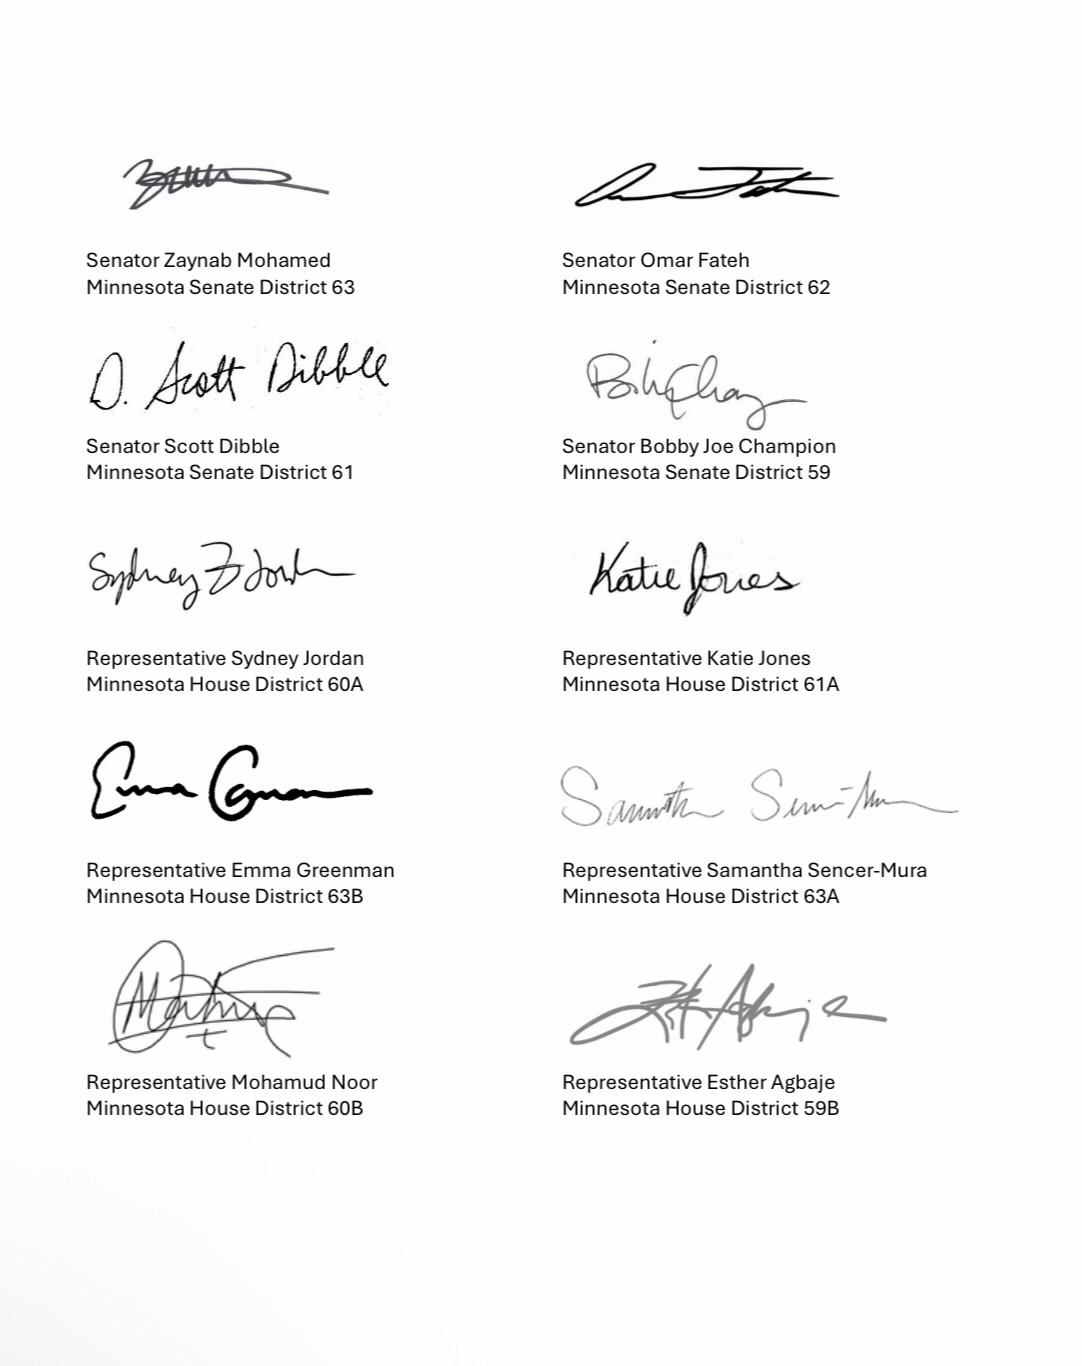 Senator Zaynab Mohamed
Minnesota Senate District 63
Omar Fateh
Senator Omar Fateh
Minnesota Senate District 62
D. Scott Dibble
Senator Scott Dibble
Minnesota Senate District 61
Senator Bobby Joe Champion
Minnesota Senate District 59
Sydney Jordan
Representative Sydney Jordan
Minnesota House District 60A
Katie Jones
Representative Katie Jones
Minnesota House District 61A
Emma
Representative Emma Greenman
Minnesota House District 63B
Samantha
Representative Samantha Sencer-Mura
Minnesota House District 63A
Representative Mohamud Noor
Minnesota House District 60B
Representative Esther Agbaje
Minnesota House District 59B